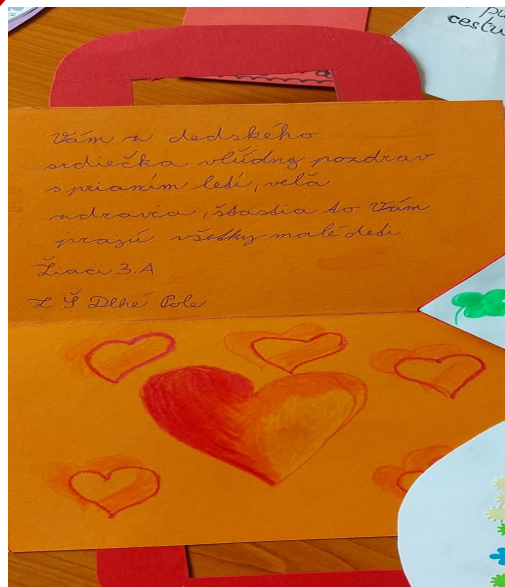 cestu
Vám z dedského
srdiečka vľúdny pozdrav
s prianím letí, veľa
zdravia, šťastia to Vám
prajú všetky malé deti
Žiaci 3.A
Z Š Dlhé Pole